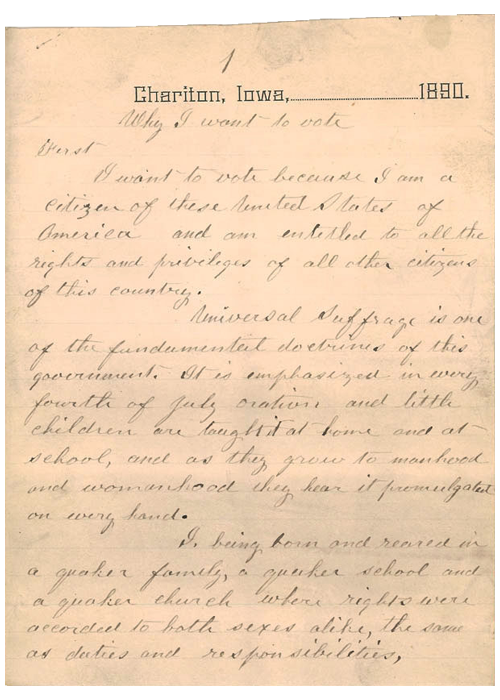 1
Chariton, Iowa, 1890.
Why I want to vote
First
I want to vote because I am a
citizen of these United States of
America and am entitled to all the
rights and privileges of all other citizens
of this country.
Universal Suffrage is one
of the fundamental doctrines of this
government. It is emphasized in every
fourth of july oration and little
children are taught it at home and at
school, and as they grow to manhood
and womanhood they hear it promulgated
on every hand.
I being born and reared in
a quaker family, a quaker school and
a quaker church where rights were
accorded to both sexes alike, the same
as duties and responsibilities,